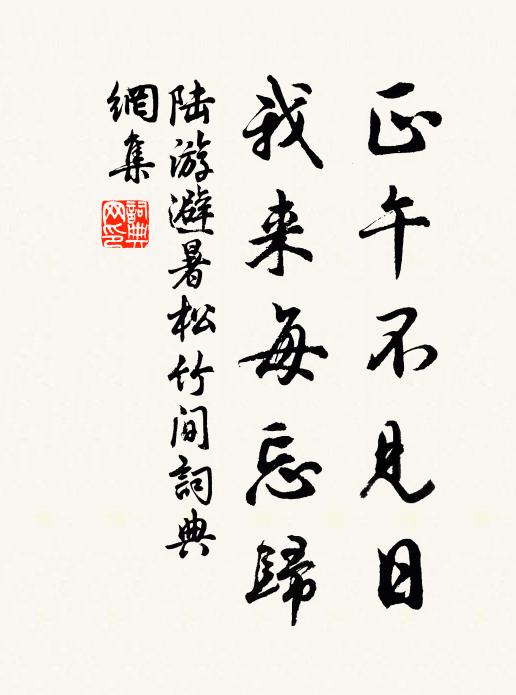 正午不见日
我来每忘歸
陆游避暑松竹间詞典
網集
詞典
网印